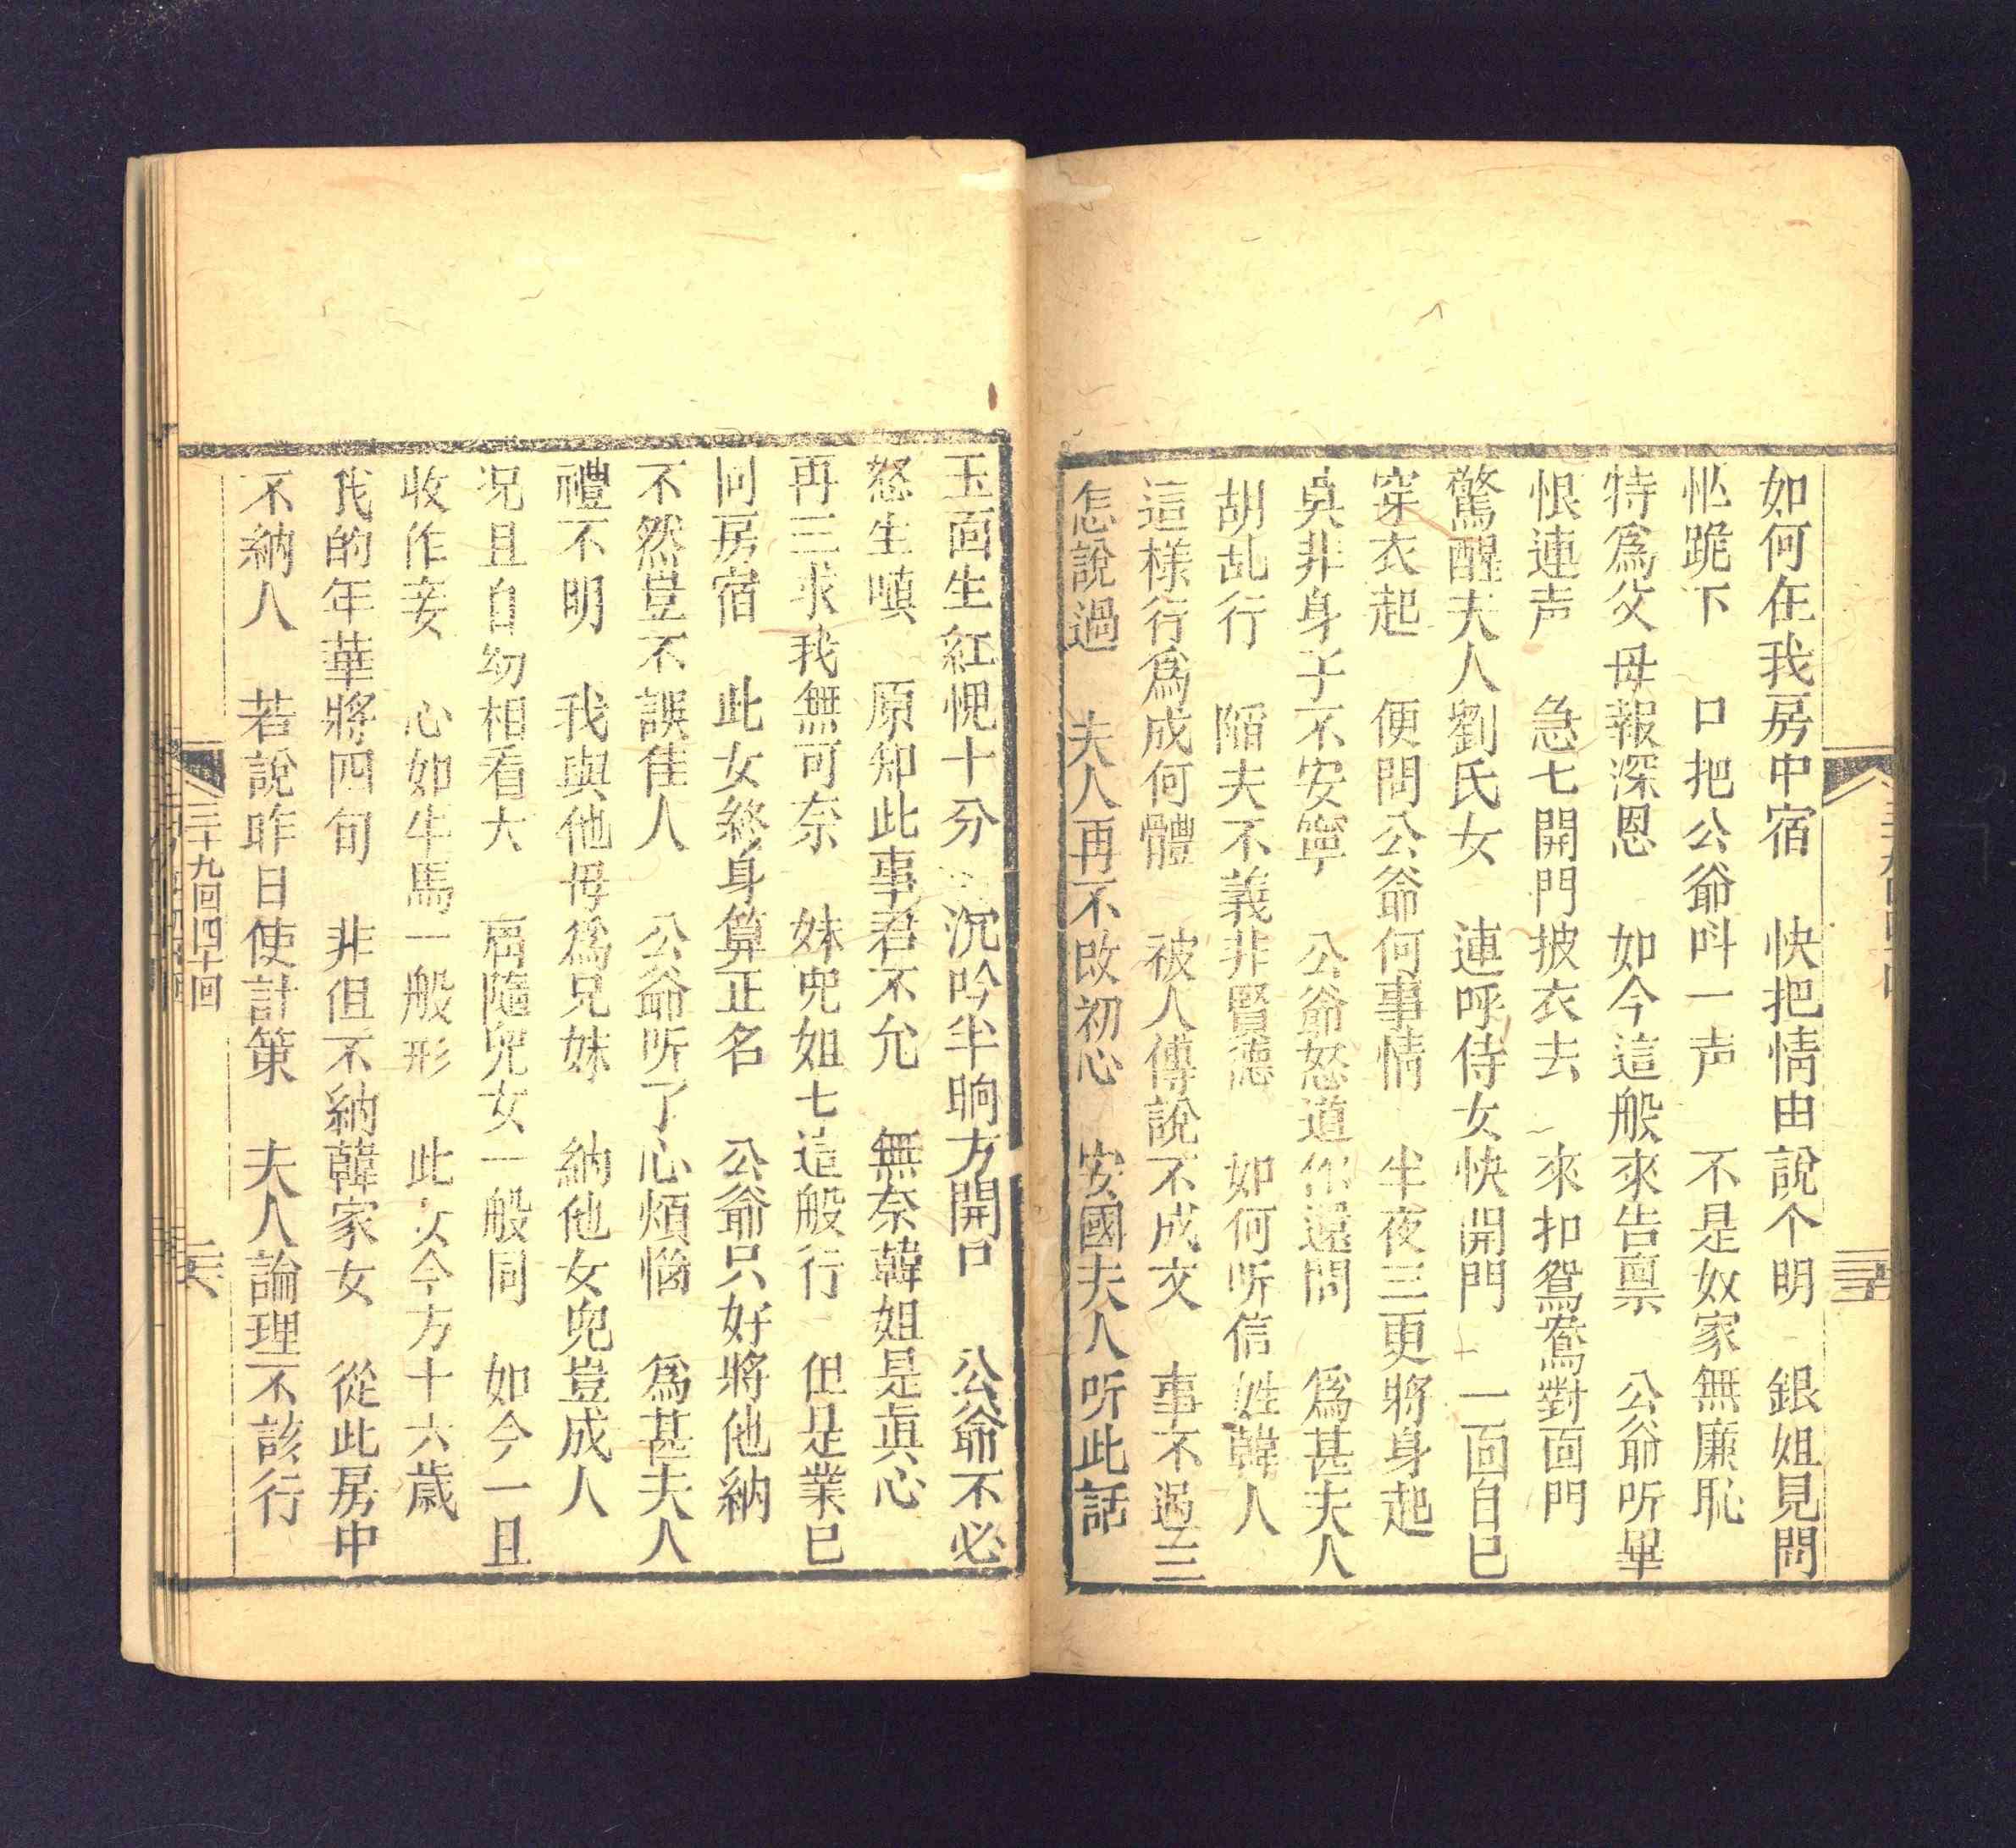 如何在我房中宿　快把情由說个明　銀姐見問
忙跪下　口把公爺呌一声　不是奴家無廉恥
特爲父母報深恩　如今這般來告禀　公爺听畢
恨連声　急七開門披衣去　來扣鴛鴦對面門
驚醒夫人劉氏女　連呼侍女快開門　一面自巳
穿衣起　便問公爺何事情　半夜三更將身起
莫非身子不安寧　公爺怒道你還問　爲甚夫人
胡乱行　陷夫不義非賢德　如何听信姓韓人
這樣行爲成何體　被人傳說不成文　事不過三
怎說過　夫人再不改初心　安國夫人听此話
玉面生紅愧十分　沉吟半晌方開口　公爺不必
怒生嗔　原知此事君不允　無奈韓姐是真心
再三求我無可奈　妹兜姐七這般行　但是業巳
同房宿　此女終身算正名　公爺只好將他納
不然豈不誤隹人　公爺听了心煩惱　爲甚夫人
禮不明　我與他母爲兄妹　納他女兜豈成人
况且自幼相看大　兩隨兜女一般同　如今一旦
收作妾　心如牛馬一般形　此女今方十六歲
我的年華將四旬　非但不納韓家女　從此房中
不納人　若說昨日使計策　夫人論理不該行
三十九回四十回　三六